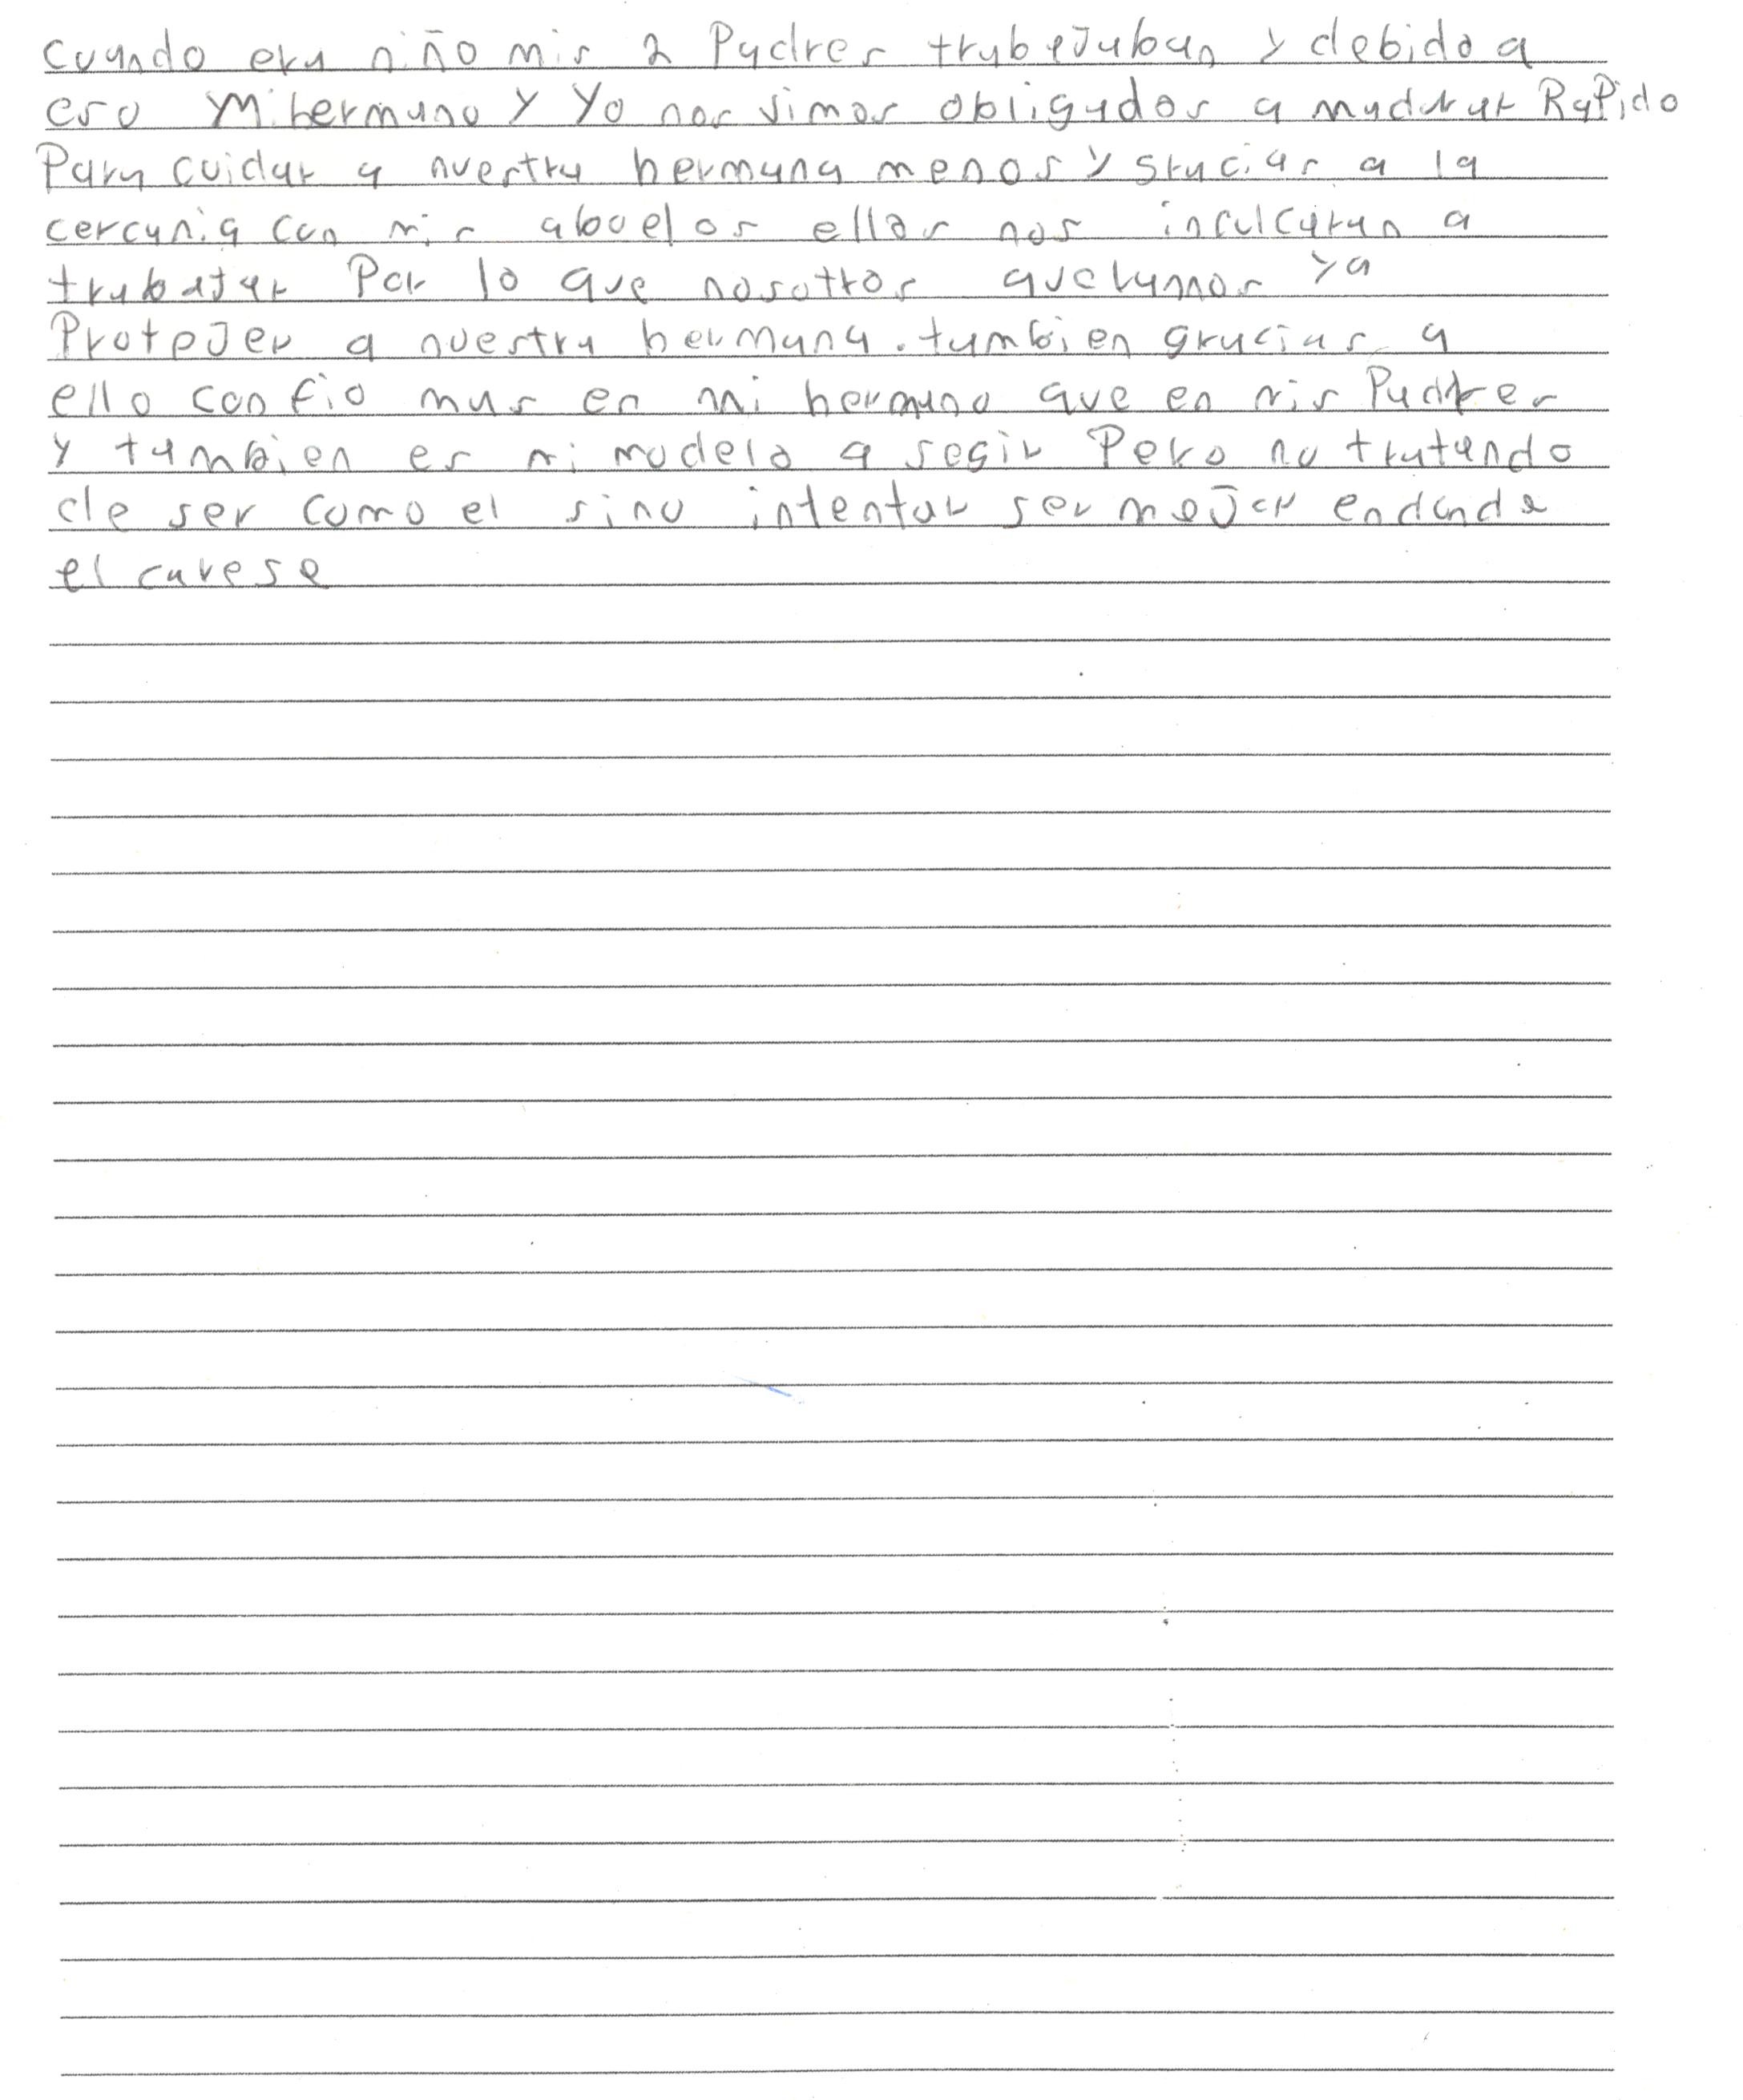 cuando era niño mis 2 Padres trabejaban y debido a
eso Mi hermano y Yo nos vimos obligados a madurar RaPido
Para cuidar a nuestra hermana menos y gracias a la
cercania con mis abuelos ellos nos inculcaran a
trabajar Por lo que nosotros queriamos ya
Protejer a nuestra hermana. tambien gracias a
ello confio mas en mi hermano que en mis Padres
y tambien es mi modelo a segir Pero no tratando
de ser como el sino intentar ser mejor en donde
el carese